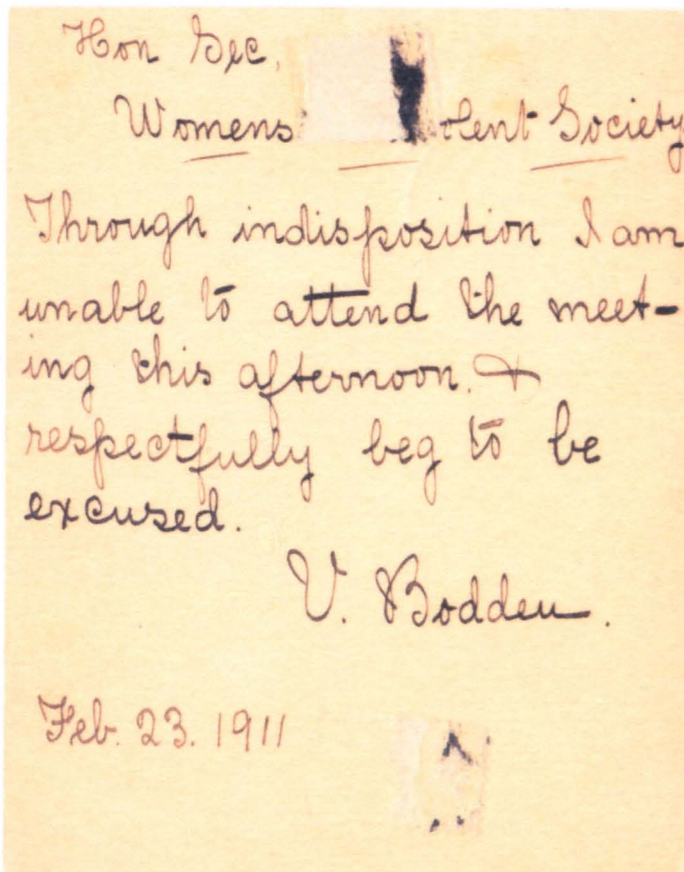 Hon Sec,
Womens olent Society
Through indisposition I am
unable to attend the meet-
ing this afternoon. +
respectfully beg to be
excused.
V. Bodden.
Feb. 23. 1911